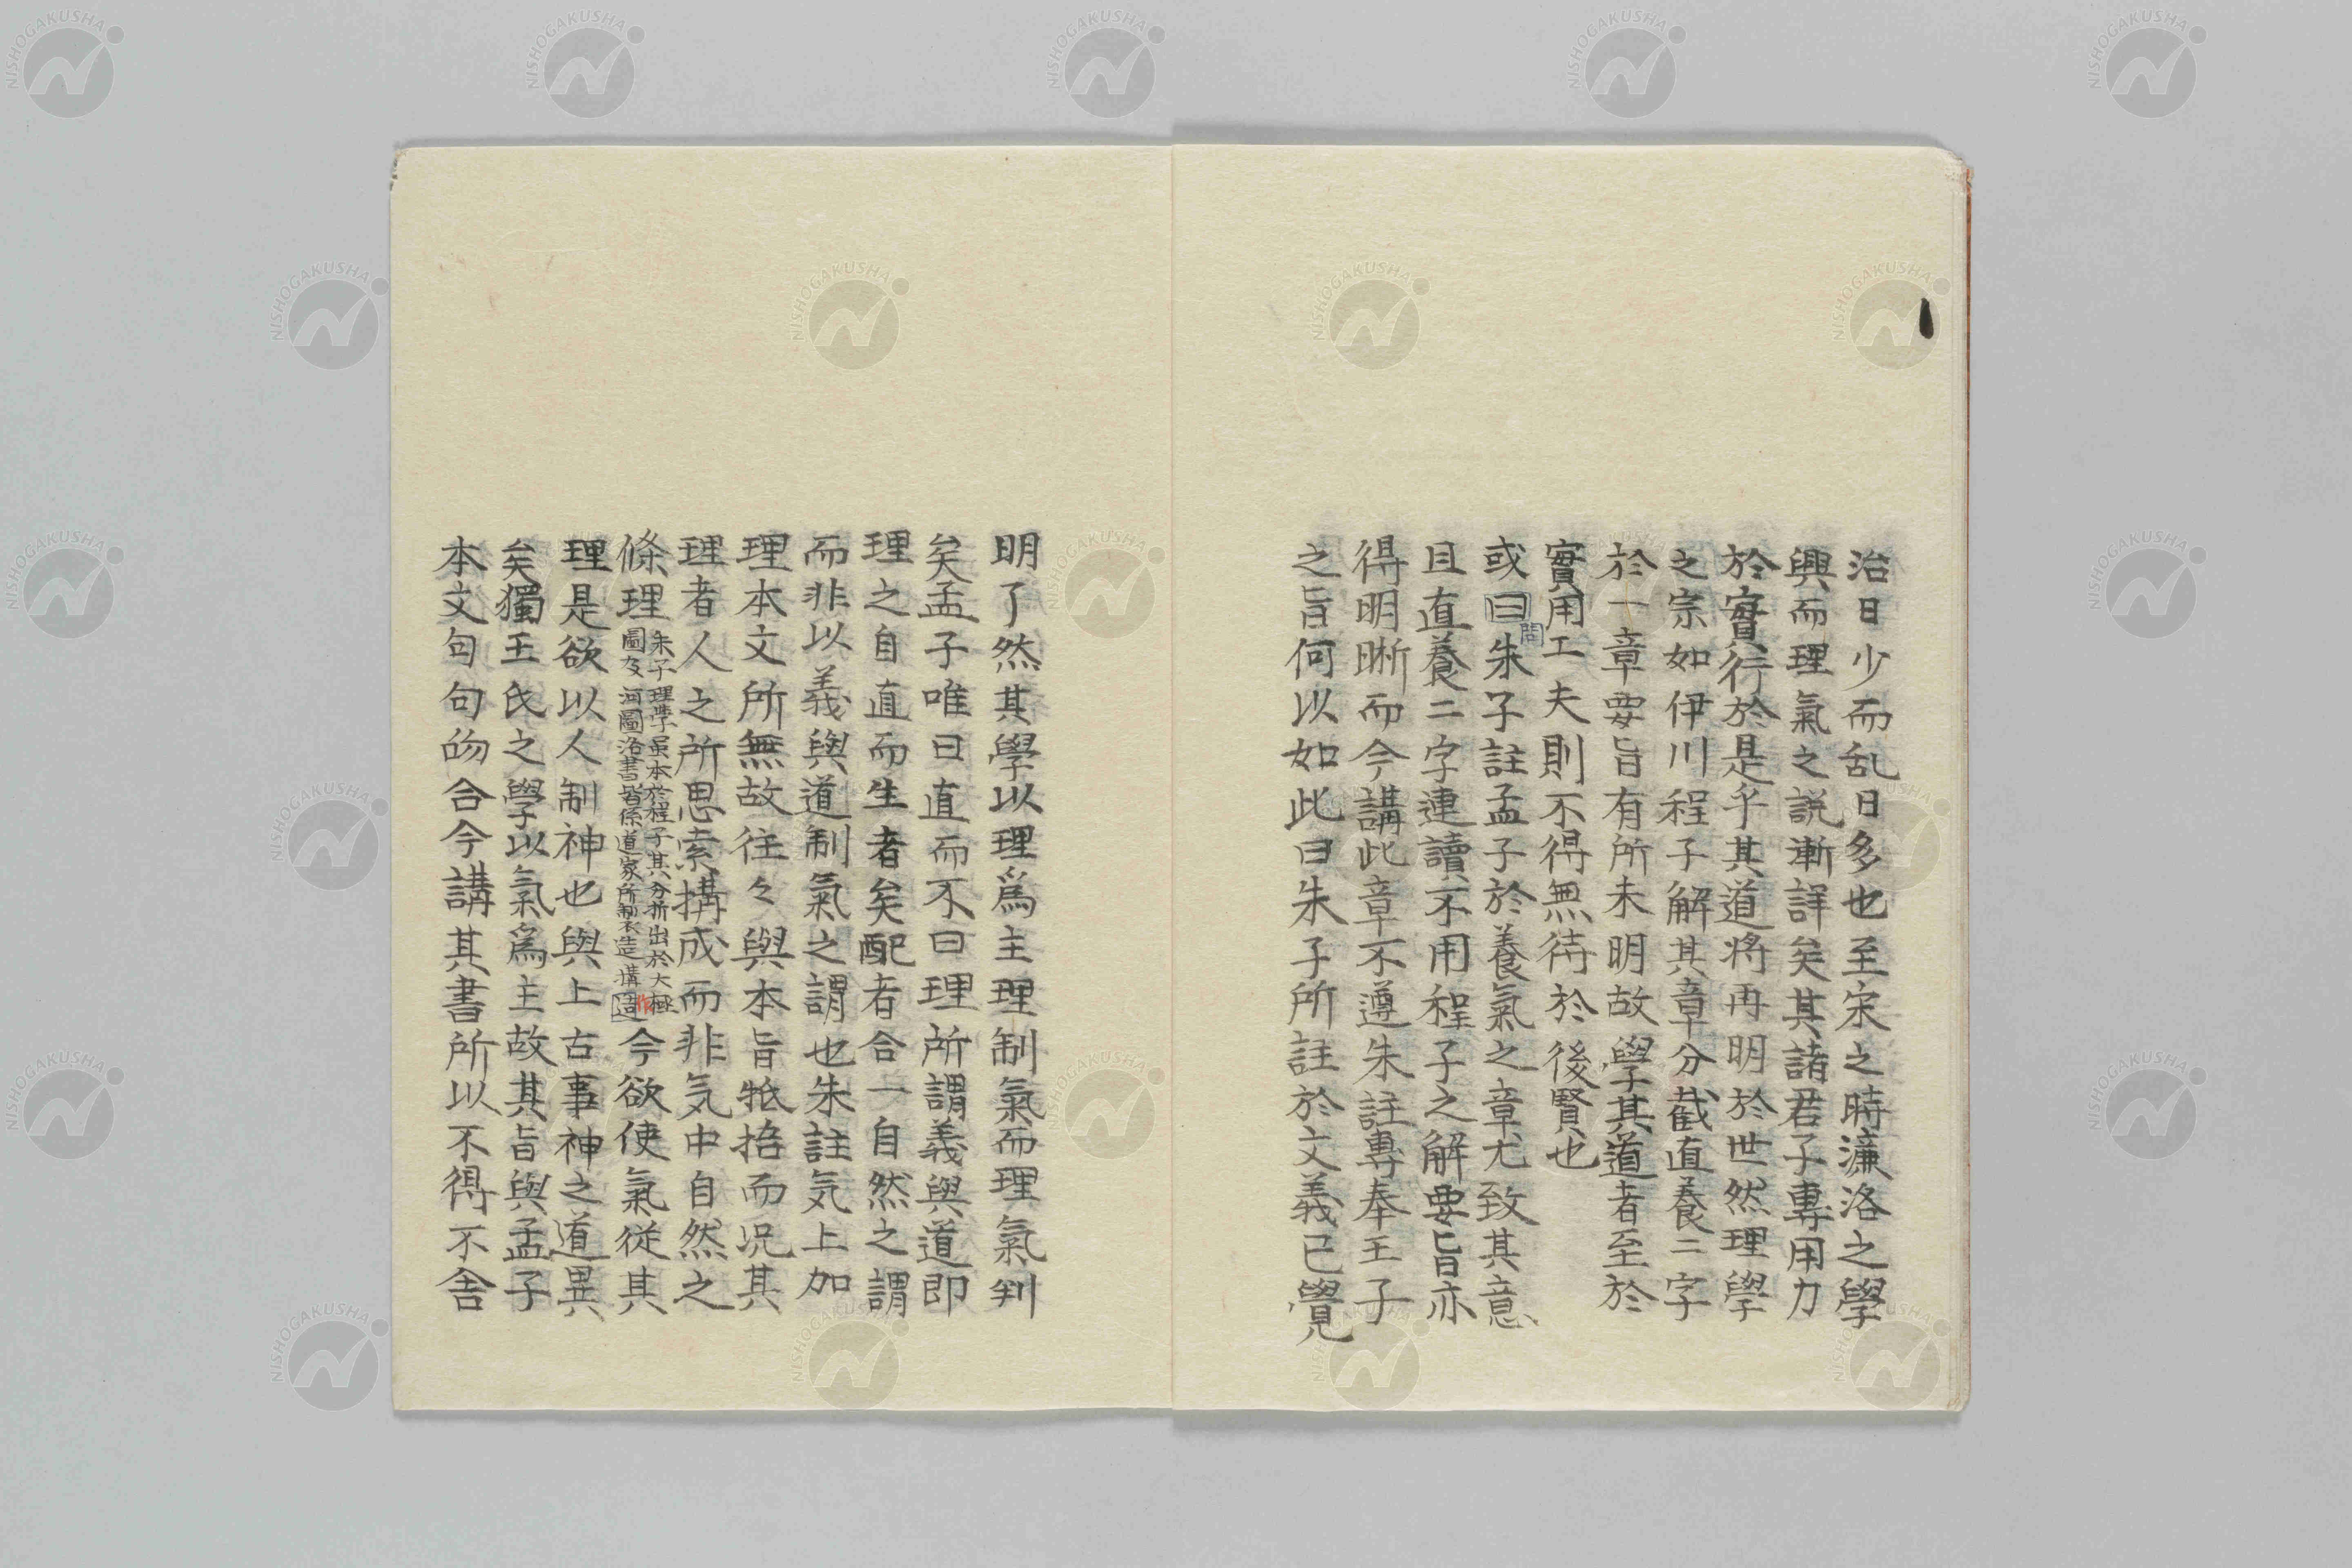 治日少而乱日多也至宋之時濂洛之學
興而理氣之説漸詳矣其諸君子專用力
於實行於是乎其道将再明於世然理學
之宗如伊川程子解其章分截直養二字
於一章要旨有所未明故學其道者至於
實用工夫則不得無待於後賢也
或曰朱子註孟子於養氣之章尤致其意
問
且直養二字連讀不用程子之解要旨亦
得明晰而今講此章不遵朱註專奉王子
之旨何以如此曰朱子所註於文義已覺
明了然其學以理爲主理制氣而理氣判
矣孟子唯曰直而不曰理所謂義與道即
理之自直而生者矣配者合一自然之謂
而非以義與道制氣之謂也朱註気上加
理本文所無故往々與本旨牴捂而况其
理者人之所思索搆成而非気中自然之
條理
朱子理學虽本於程子其分析出於大極
作
圖及河圖洛書皆係道家所製造搆造
今欲使氣従其
理是欲以人制神也與上古事神之道異
矣獨王氏之學以氣爲主故其旨與孟子
本文句句吻合今講其書所以不得不舎
NISHOGAKUSHA